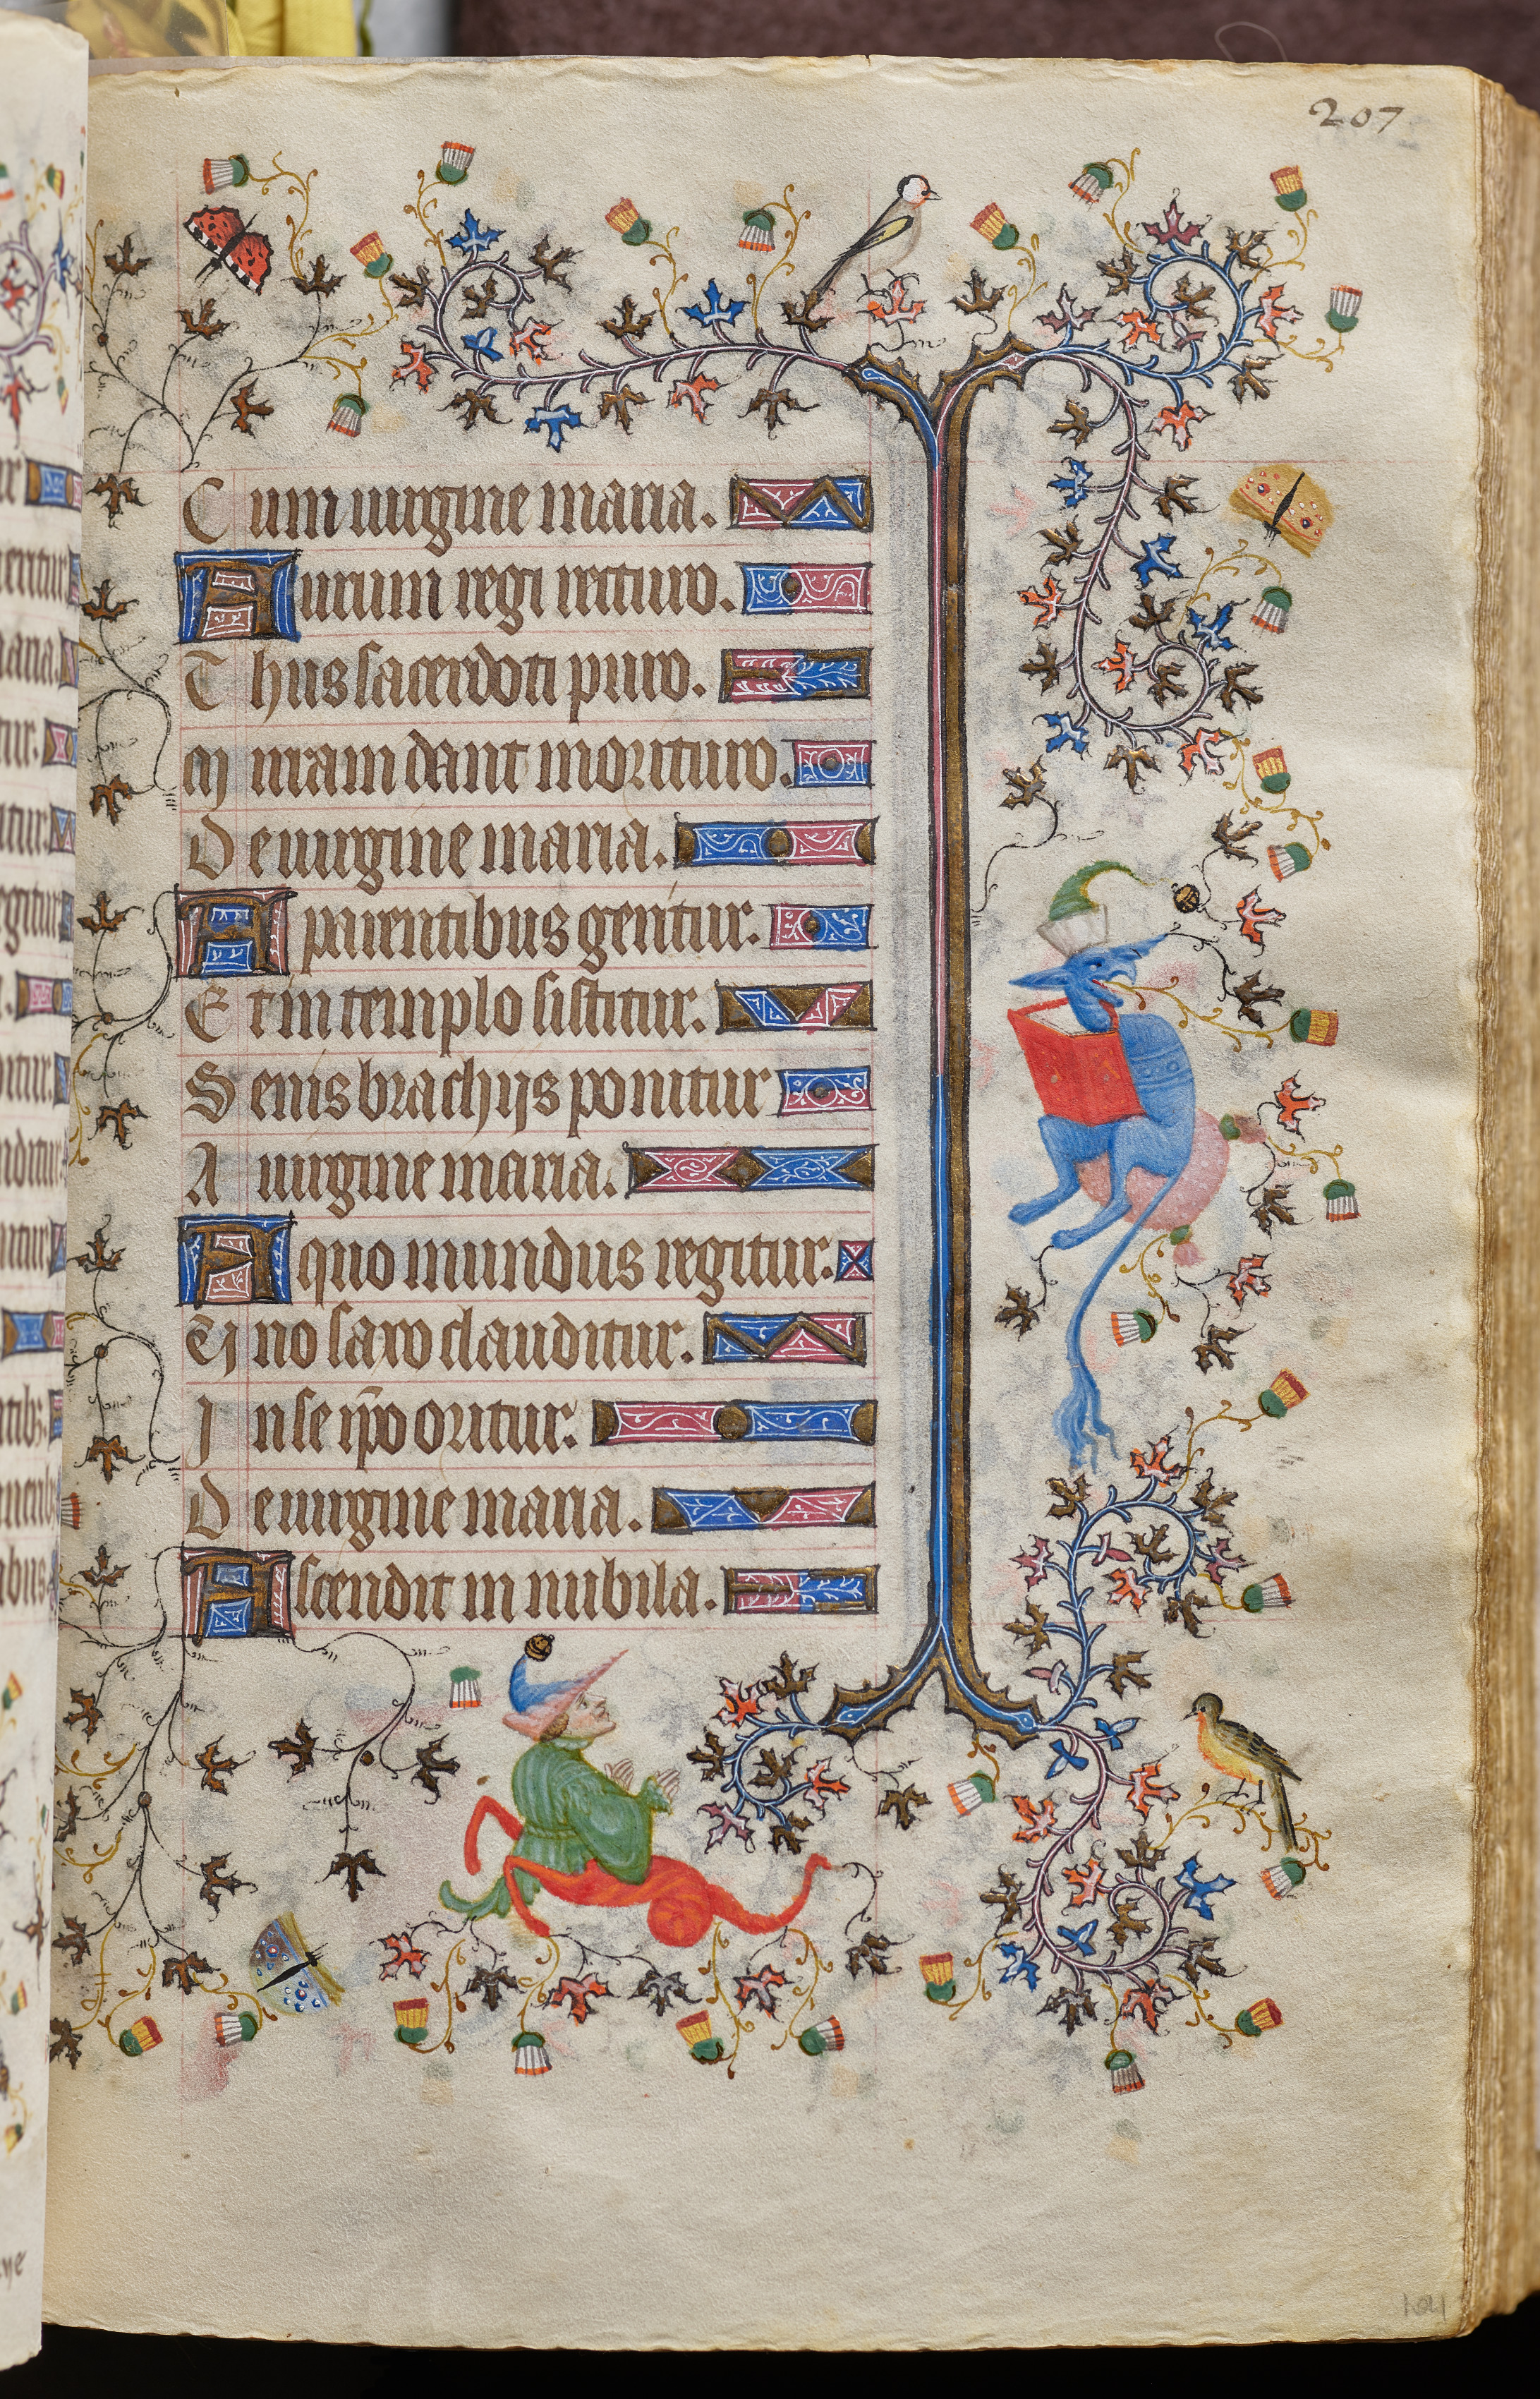 207
Cum uirgine maria.
Aurum regi recturo.
Thus sacerdoti puro.
Mirram dant morituro.
De uirgine maria.
A parentibus gentur.
Et in templo sistitur.
Senis brachijs ponitur
A uirgine maria.
A quo mundus regitur.
Uno saxo clauditur.
In se ip̄o oritur.
De uirgine maria.
Ascendit in nubila.